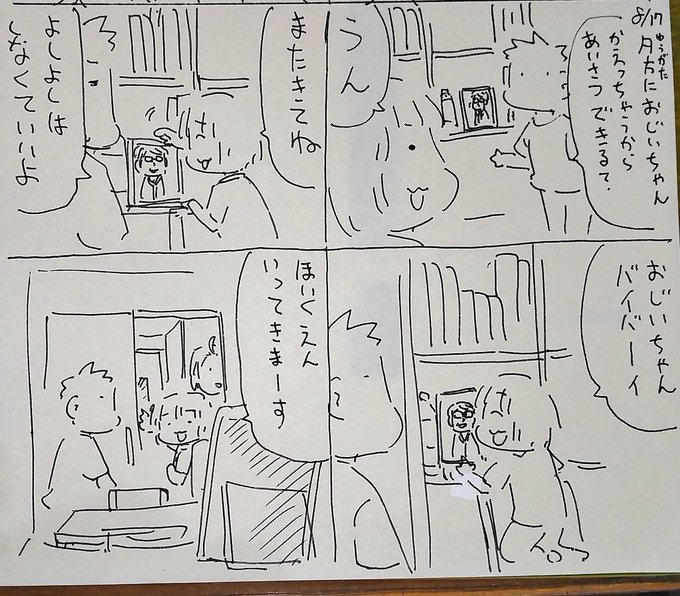 8/17
ゆうがた
夕方におじいちゃん
かえっちゃうから
あいさつできるて.
うん
またきてね
よしよしは
しなくていいよ
おじいちゃん
バイバーイ
ほいくえん
いってきまーす